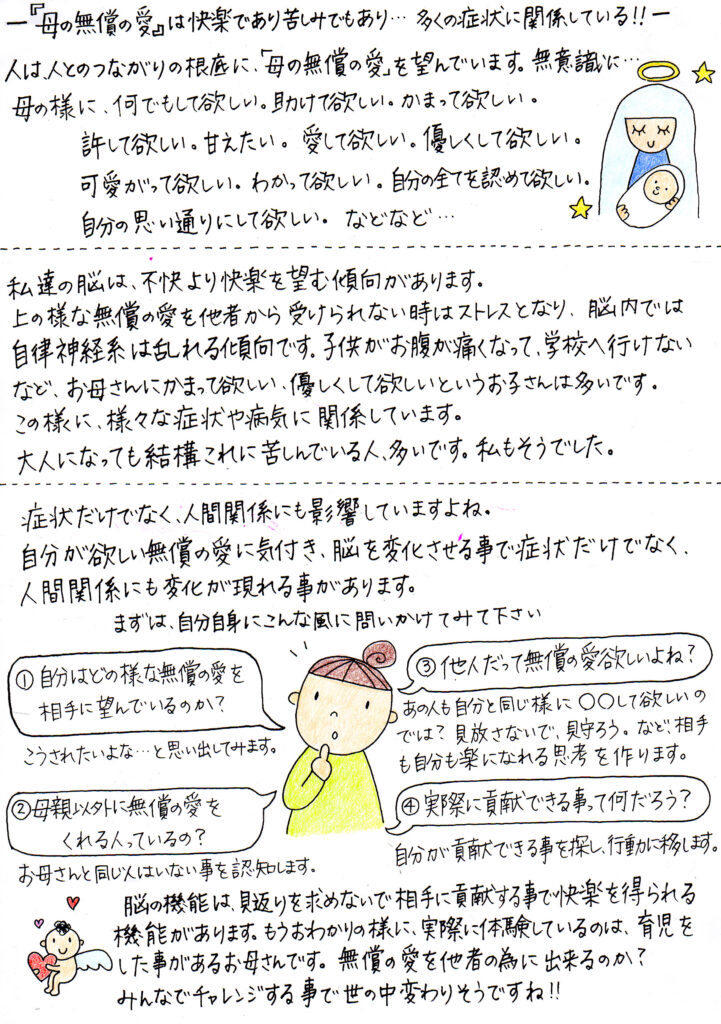 ―『母の無償の愛』は快楽であり苦しみでもあり… 多くの症状に関係している!!―
人は、人とのつながりの根底に、「母の無償の愛」を望んでいます。無意識に…
母の様に、何でもして欲しい。助けて欲しい。かまって欲しい。
許して欲しい。甘えたい。 愛して欲しい。優しくして欲しい。
可愛がって欲しい。わかって欲しい。自分の全てを認めて欲しい。
自分の思い通りにして欲しい。 などなど…
私達の脳は、不快より快楽を望む傾向があります。
上の様な無償の愛を他者から受けられない時はストレスとなり、脳内では
自律神経系は乱れる傾向です。子供がお腹が痛くなって、学校へ行けない
など、お母さんにかまって欲しい、優しくして欲しいというお子さんは多いです。
この様に、様々な症状や病気に関係しています。
大人になっても結構これに苦しんでいる人、多いです。私もそうでした。
症状だけでなく、人間関係にも影響していますよね。
自分が欲しい無償の愛に気付き、脳を変化させる事で症状だけでなく、
人間関係にも変化が現れる事があります。
まずは、自分自身にこんな風に問いかけてみて下さい
①自分はどの様な無償の愛を
相手に望んでいるのか?
こうされたいよな…と思い出してみます。
②母親以外に無償の愛を
くれる人っているの?
お母さんと同じ人はいない事を認知します。
③他人だって無償の愛欲しいよね?
あの人も自分と同じ様に〇〇して欲しいの
では?見放さないで、見守ろう。など、相手
も自分も楽になれる思考を作ります。
④実際に貢献できる事って何だろう?
自分が貢献できる事を探し、行動に移します。
脳の機能は、見返りを求めないで相手に貢献する事で快楽を得られる
機能があります。もうおわかりの様に、実際に体験しているのは、育児を
した事があるお母さんです。無償の愛を他者の為に出来るのか?
みんなでチャレンジする事で世の中変わりそうですね!!